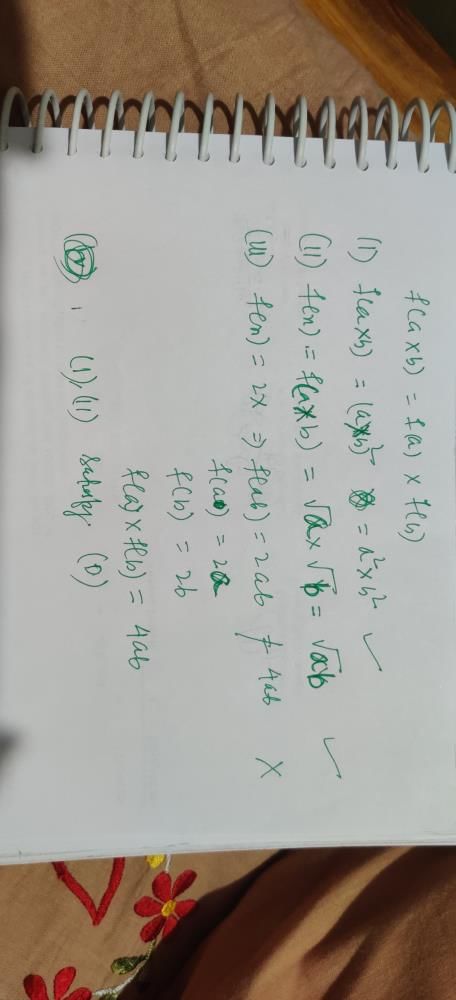 f(a×b) = f(a) × f(b)
(I) f(a×b) = (a×b)² = a²×b² ✓
(II) f(x) = f(a×b) = √a × √b = √ab ✓
(III) f(x) = 2x ⇒ f(ab) = 2ab ≠ 4ab ×
f(a) = 2a
f(b) = 2b
f(a)×f(b) = 4ab
(I), (II) satisfy. (D)